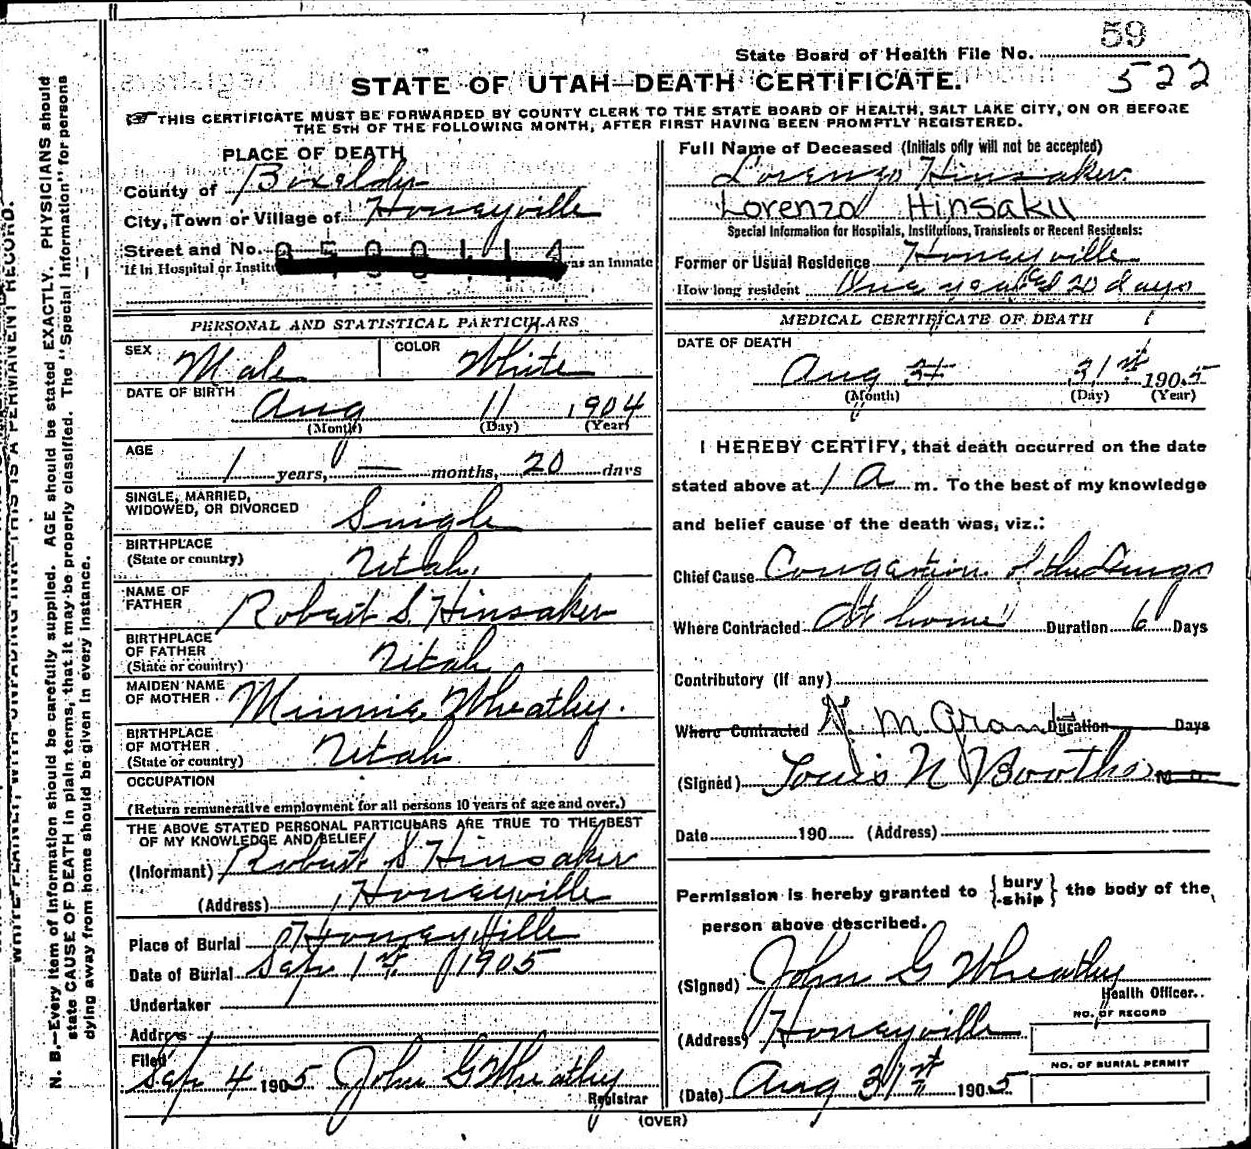 59
State Board of Health File No.
522
STATE OF UTAH—DEATH CERTIFICATE.
THIS CERTIFICATE MUST BE FORWARDED BY COUNTY CLERK TO THE STATE BOARD OF HEALTH, SALT LAKE CITY, ON OR BEFORE
THE 5TH OF THE FOLLOWING MONTH, AFTER FIRST HAVING BEEN PROMPTLY REGISTERED.
PLACE OF DEATH
County of Boxelder
City, Town or Village of Honeyville
Street and No. 0500114
If in Hospital or Institu as an Inmate
PERSONAL AND STATISTICAL PARTICULARS
SEX Male COLOR White
DATE OF BIRTH Aug 11 1904
(Month) (Day) (Year)
AGE
1 years, — months, 20 days
SINGLE, MARRIED,
WIDOWED, OR DIVORCED Single
BIRTHPLACE
(State or country) Utah.
NAME OF
FATHER Robert S. Hinsaker
BIRTHPLACE
OF FATHER
(State or country) Utah
MAIDEN NAME
OF MOTHER Minnie Wheatley.
BIRTHPLACE
OF MOTHER
(State or country) Utah
OCCUPATION
(Return remunerative employment for all persons 10 years of age and over.)
THE ABOVE STATED PERSONAL PARTICULARS ARE TRUE TO THE BEST
OF MY KNOWLEDGE AND BELIEF
(Informant) Robert S Hinsaker
(Address) Honeyville
Place of Burial Honeyville
Date of Burial Sep 1st 1905
Undertaker
Address
Filed
Sep 4 1905 John G Wheatley
Registrar
Full Name of Deceased (Initials only will not be accepted)
Lorenzo Hinsaker
Lorenzo Hinsaku
Special Information for Hospitals, Institutions, Transients or Recent Residents:
Former or Usual Residence Honeyville
How long resident One year 20 days
MEDICAL CERTIFICATE OF DEATH
DATE OF DEATH
Aug 31 31st 1905
(Month) (Day) (Year)
I HEREBY CERTIFY, that death occurred on the date
stated above at 1 a m. To the best of my knowledge
and belief cause of the death was, viz.:
Chief Cause Congestion of the Lungs
Where Contracted At home Duration 6 Days
Contributory (if any)
Where Contracted N. M Grant Duration Days
(Signed) Louis N Boothe M. D.
Date 190 (Address)
Permission is hereby granted to {bury
ship} the body of the
person above described.
(Signed) John G Wheatley
Health Officer.
(Address) Honeyville
NO. OF RECORD
NO. OF BURIAL PERMIT
(Date) Aug 31st 1905
(OVER)
N. B.—Every item of information should be carefully supplied. AGE should be stated EXACTLY. PHYSICIANS should
state CAUSE OF DEATH in plain terms, that it may be properly classified. The "Special Information" for persons
dying away from home should be given in every instance.
WRITE PLAINLY, WITH UNFADING INK—THIS IS A PERMANENT RECORD.